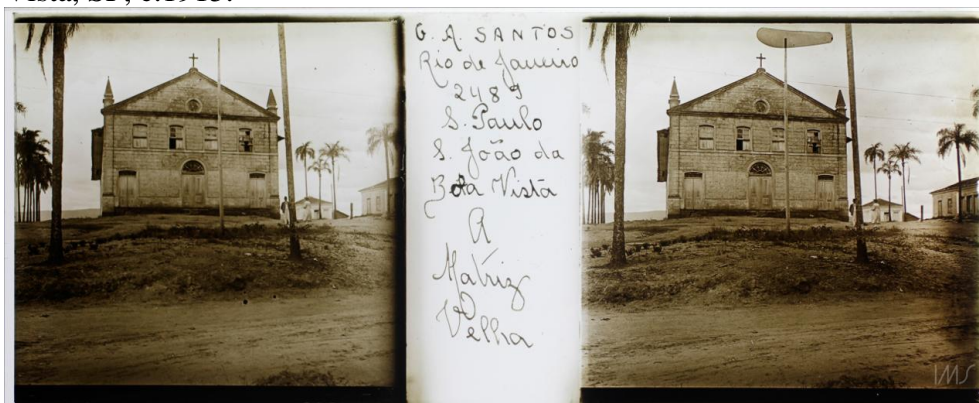 Vista, SP, c.1915.
G. A. SANTOS
Rio de Janeiro
2489
S. Paulo
S. João da
Boa Vista
A
Matriz
Velha
IMS